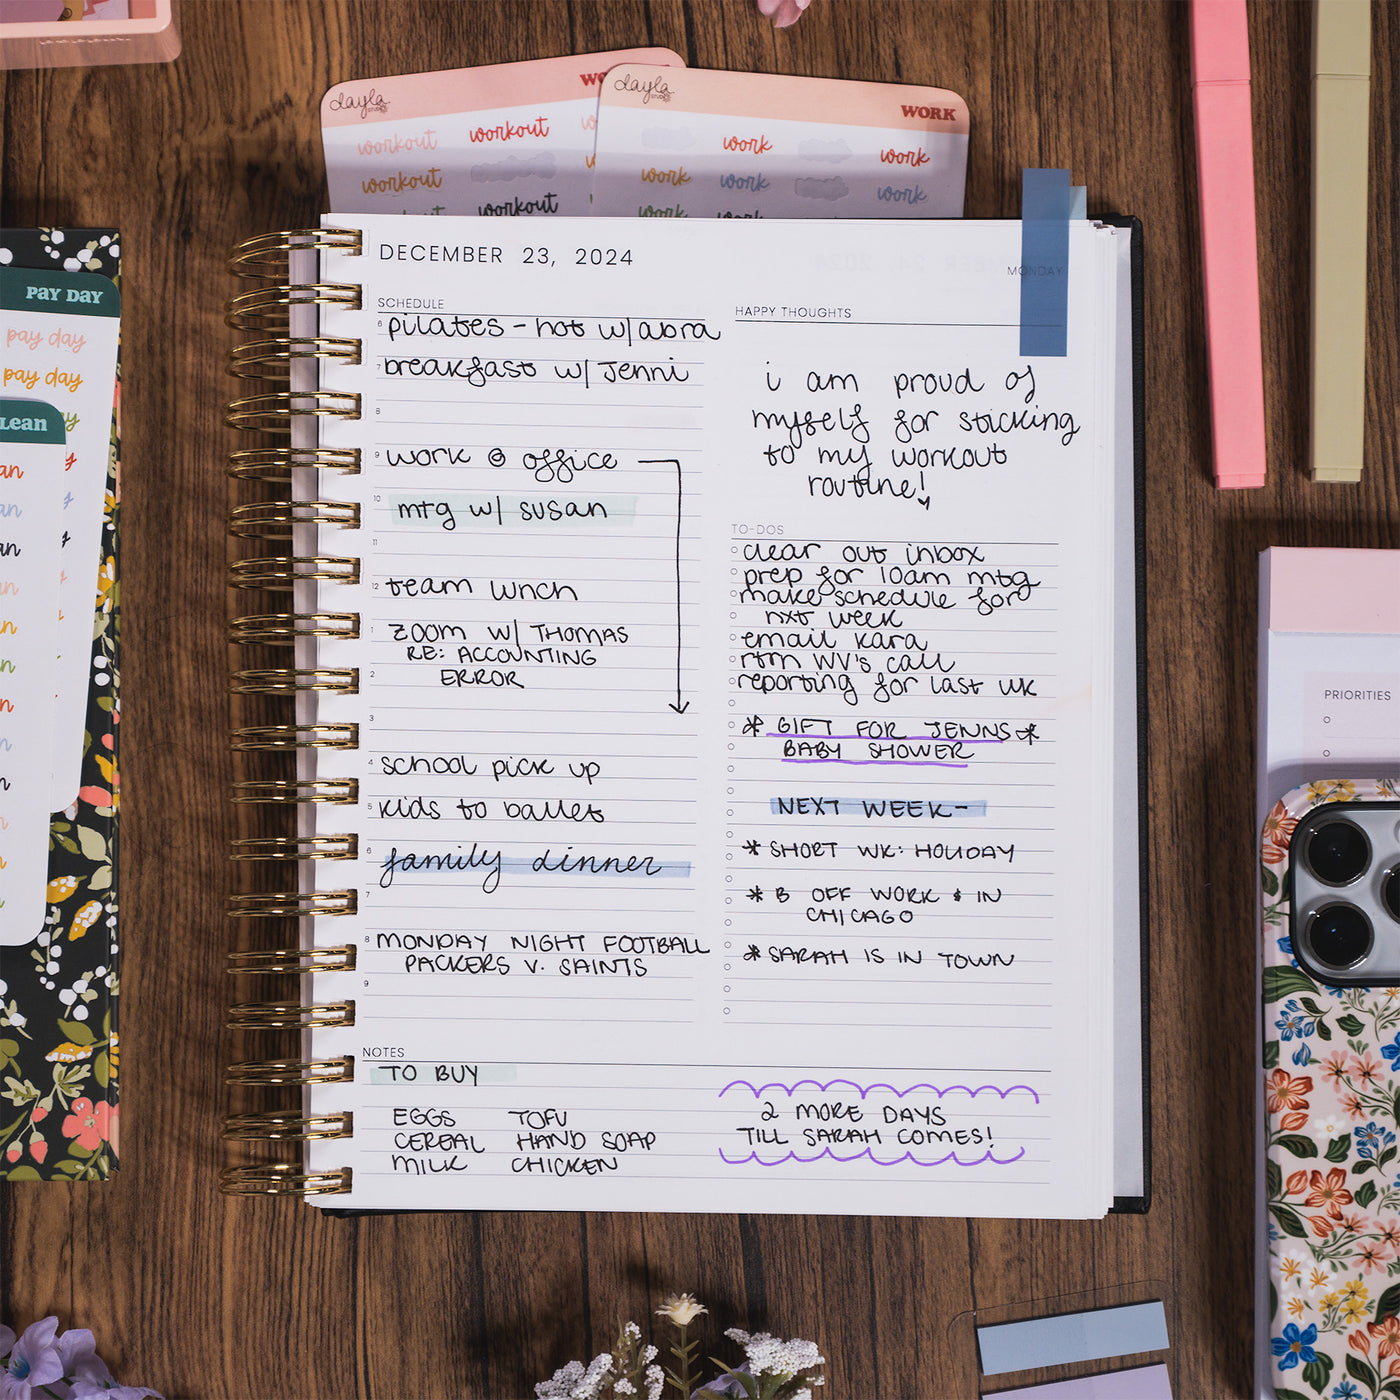 dayla
STUDIO
WORK
workout
workout
workout
workout
workout
dayla
STUDIO
WORK
work
work
work
work
work
work
work
PAY DAY
pay day
pay day
LEAN
DECEMBER 23, 2024
MONDAY
SCHEDULE
6 pilates - hot w/ abra
7 breakfast w/ Jenni
8
9 work @ office
10 mtg w/ susan
11
12 team lunch
1 ZOOM W/ THOMAS
RE: ACCOUNTING
2 ERROR
3
4 school pick up
5 kids to ballet
6 family dinner
7
8 MONDAY NIGHT FOOTBALL
PACKERS V. SAINTS
9
HAPPY THOUGHTS
i am proud of
myself for sticking
to my workout
routine!
TO-DOS
clear out inbox
prep for 10am mtg
make schedule for
nxt week
email kara
rtrn WV's call
reporting for last wk
* GIFT FOR JENNS *
BABY SHOWER
NEXT WEEK -
* SHORT WK: HOLIDAY
* B OFF WORK & IN
CHICAGO
* SARAH IS IN TOWN
NOTES
TO BUY
EGGS TOFU
CEREAL HAND SOAP
MILK CHICKEN
2 MORE DAYS
TILL SARAH COMES!
PRIORITIES